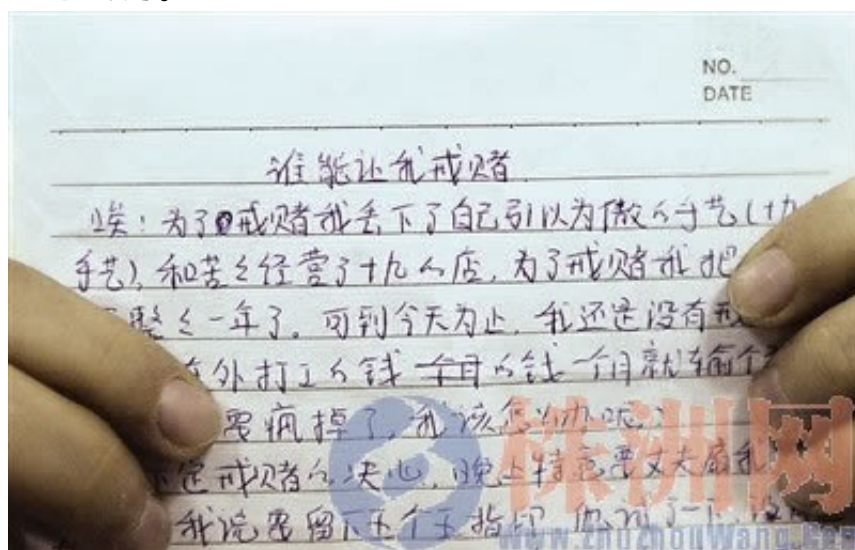 NO.
DATE
谁能让我戒赌
唉!为了戒赌我丢下了自己引以为傲的手艺(十九
手艺),和苦々经营了十九的店,为了戒赌我把
整々一年了。可到今天为止,我还是没有
在外打工的钱 个月的钱一个月就输个
要疯掉了,我该怎么办呢?
定戒赌的决心,晚上特意要丈夫扇我
我说要留下五个手指印,他
株洲网
www.zhuzhouwang.com